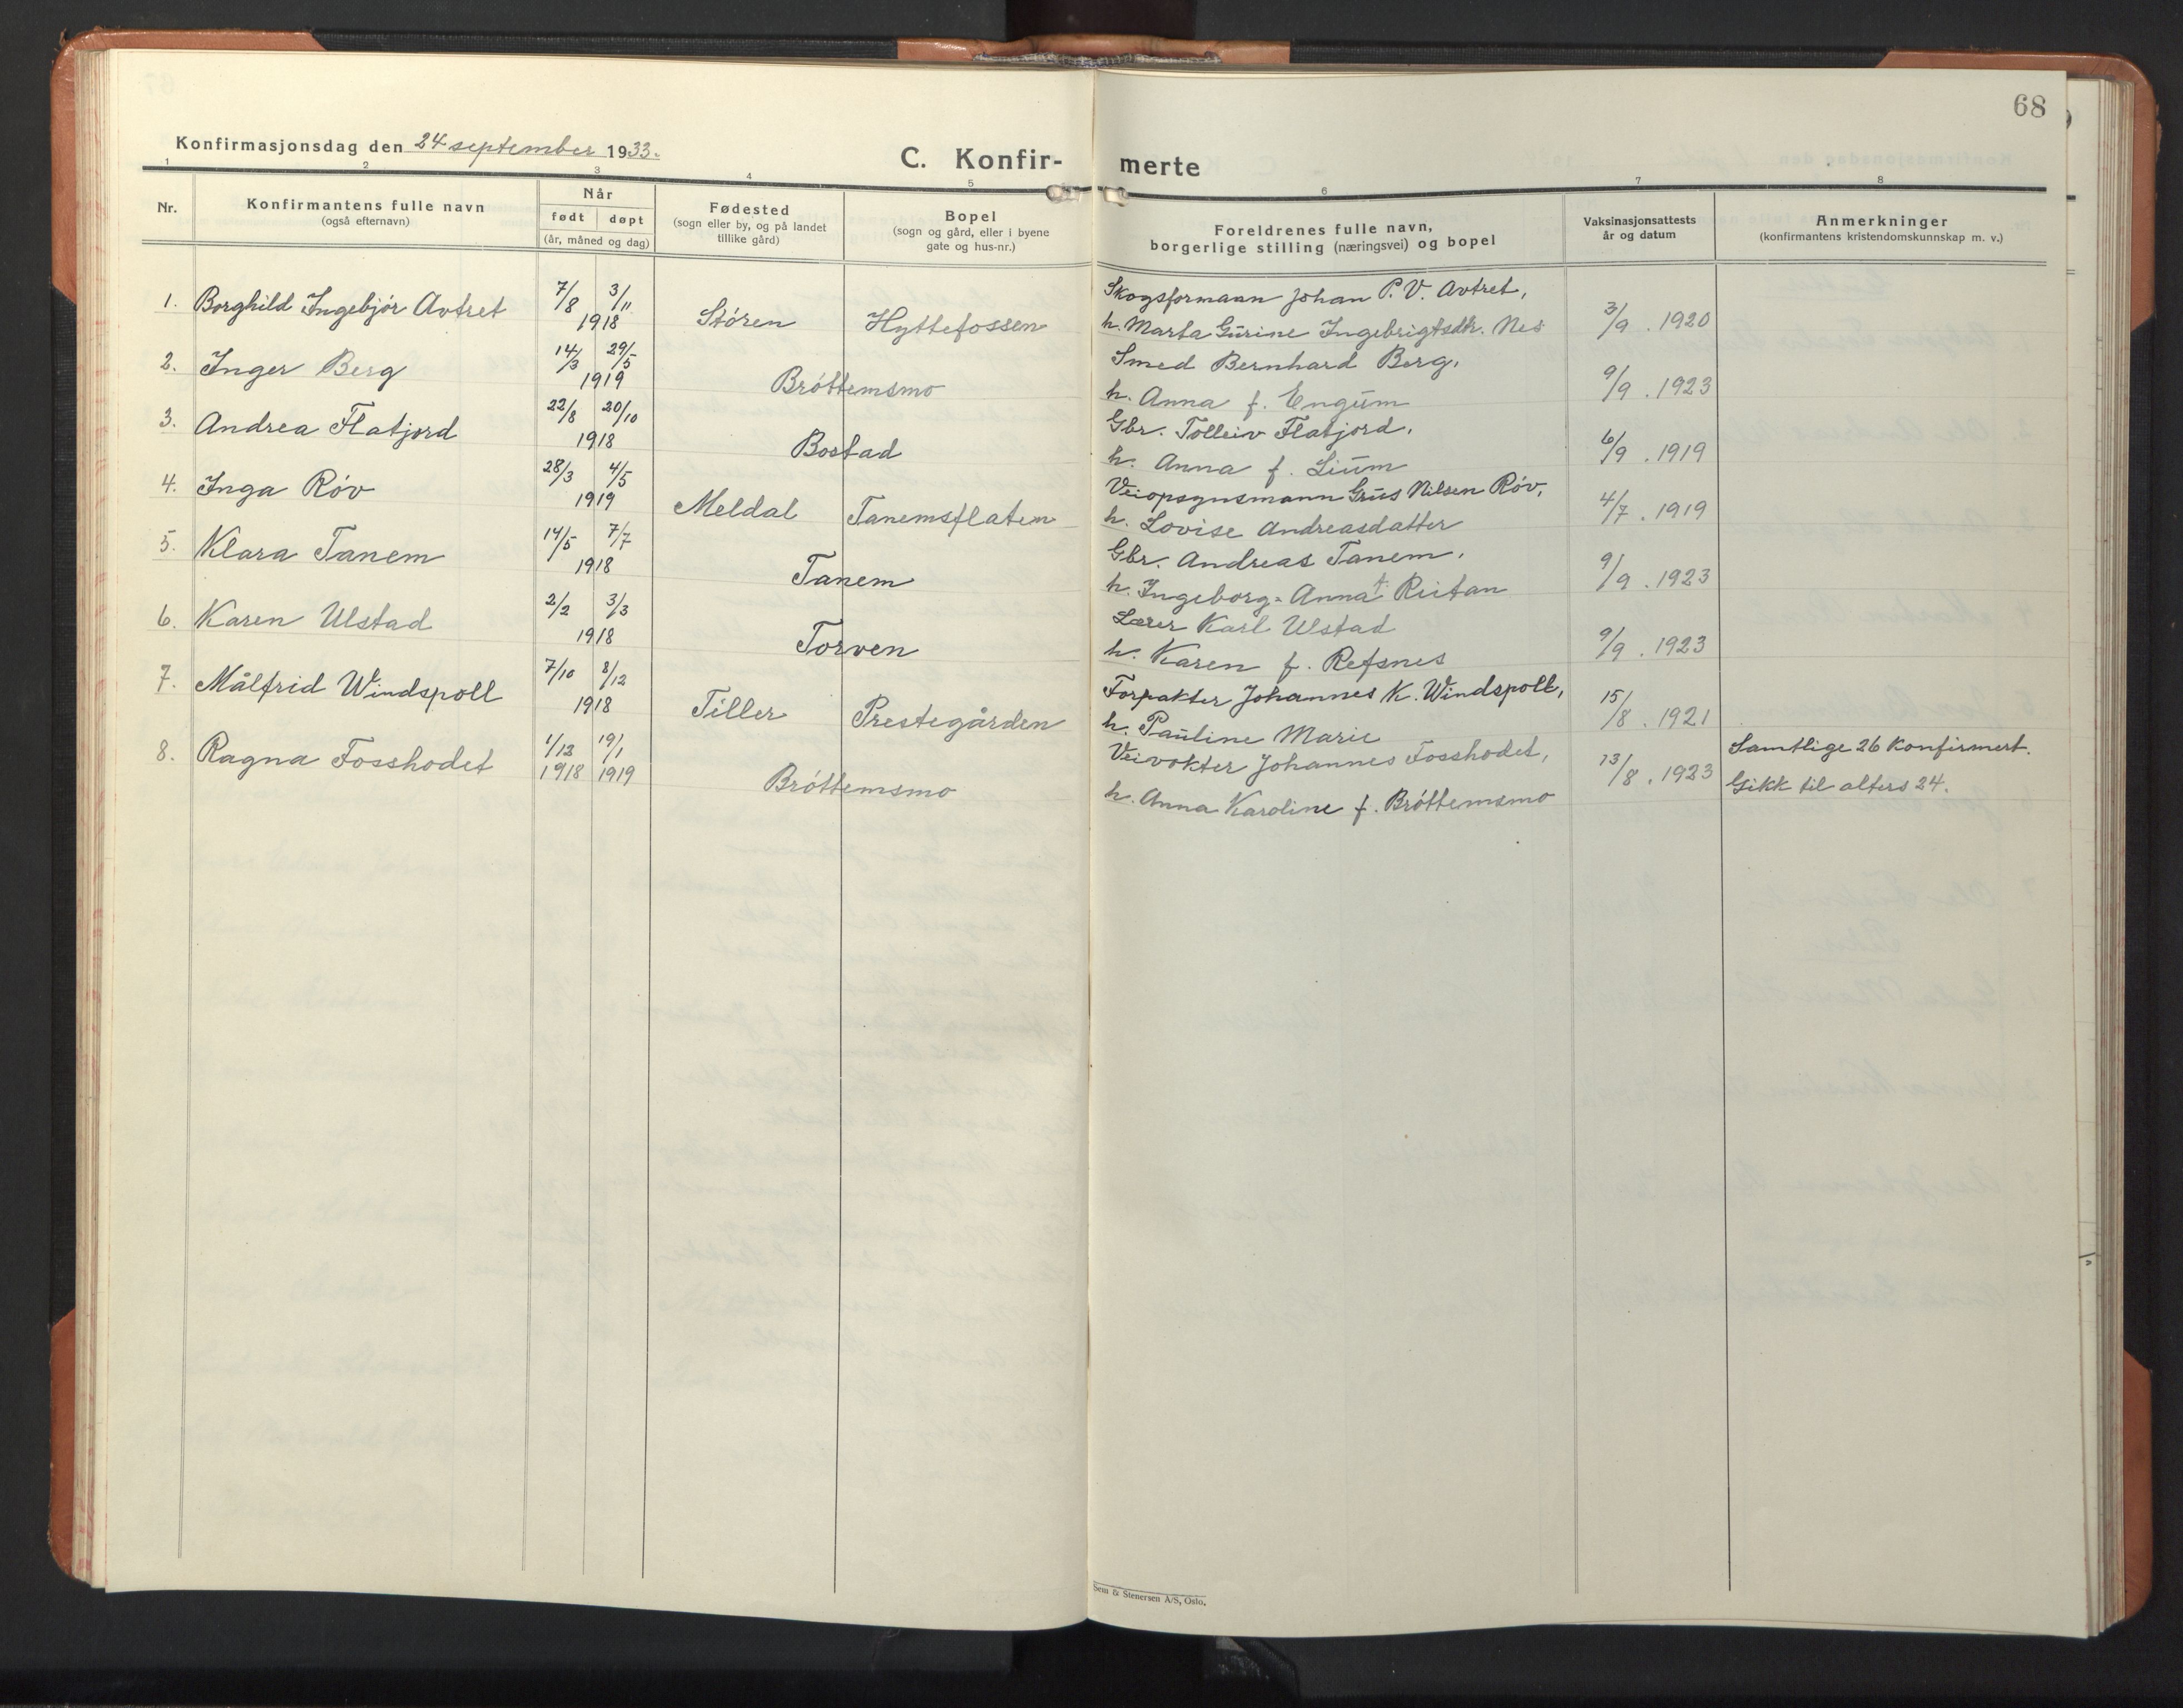 68
Konfirmasjonsdag den 24 september 1933.
C. Konfir- merte
1 2 3 4 5 6 7 8
Nr. Konfirmantens fulle navn (også efternavn) Når født døpt (år, måned og dag) Fødested (sogn eller by, og på landet tillike gård) Bopel (sogn og gård, eller i byene gate og hus-nr.) Foreldrenes fulle navn, borgerlige stilling (næringsvei) og bopel Vaksinasjonsattests år og datum Anmerkninger (konfirmantens kristendomskunnskap m. v.)
1. Borghild Ingebjør Avtret 7/8 3/11 1918 Støren Hyttefossen Skogsformann Johan P. V. Avtret,
h. Marta Gurine Ingebrigtsdtr. Nes 3/9 . 1920
2. Inger Berg 14/3 29/5 1919 Brøttemsmo Smed Bernhard Berg,
h. Anna f. Engum 9/9 . 1923
3. Andrea Flatjord 22/8 20/10 1918 Bostad Gbr. Tolleiv Flatjord,
h. Anna f. Lium 6/9 . 1919
4. Inga Røv 28/3 4/5 1919 Meldal Tanemsflaten Veiopsynsmann Nilsen Røv,
h. Lovise Andreasdatter 4/7 . 1919
5. Klara Tanem 14/5 7/7 1918 Tanem Gbr. Andreas Tanem,
h. Ingeborg-Anna f. Reitan 9/9 . 1923
6. Karen Ulstad 2/2 3/3 1918 Torven Lærer Karl Ulstad
h. Karen f. Refsnes 9/9 . 1923
7. Målfrid Windspoll 7/10 8/12 1918 Tiller Prestegården Forpakter Johannes K. Windspoll,
h. Pauline Marie 15/8 . 1921
8. Ragna Fosshodet 1/12 1918 19/1 1919 Brøttemsmo Veivokter Johannes Fosshodet, Samtlige 26 konfirmert.
h. Anna Karoline f. Brøttemsmo 13/8 . 1923 Gikk til alters 24.
Sem & Stenersen A/S, Oslo.